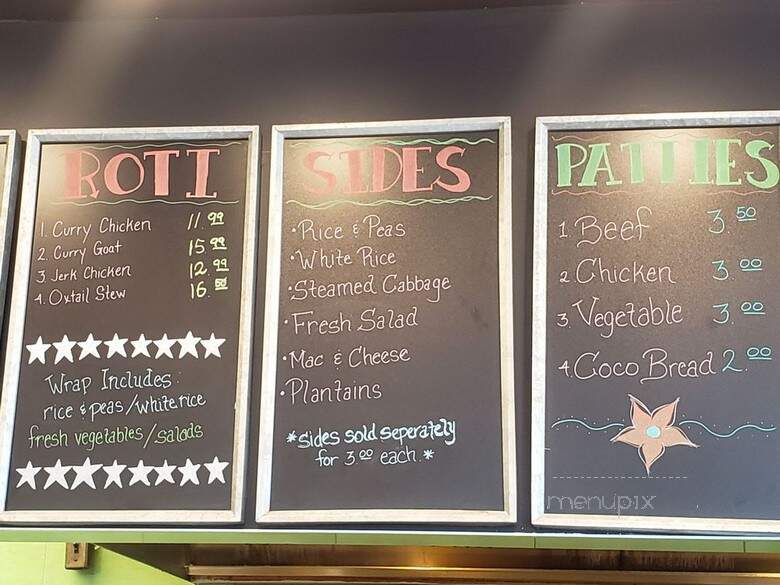 ROTI
1. Curry Chicken 11.99
2. Curry Goat 15.99
3. Jerk Chicken 12.99
4. Oxtail Stew 16.50
Wrap Includes:
rice & peas/white rice
fresh vegetables/salads
SIDES
•Rice & Peas
•White Rice
•Steamed Cabbage
•Fresh Salad
•Mac & Cheese
•Plantains
*sides sold seperately
for 3.00 each.*
PATTIES
1. Beef 3.50
2. Chicken 3.00
3. Vegetable 3.00
4. Coco Bread 2.00
menupix